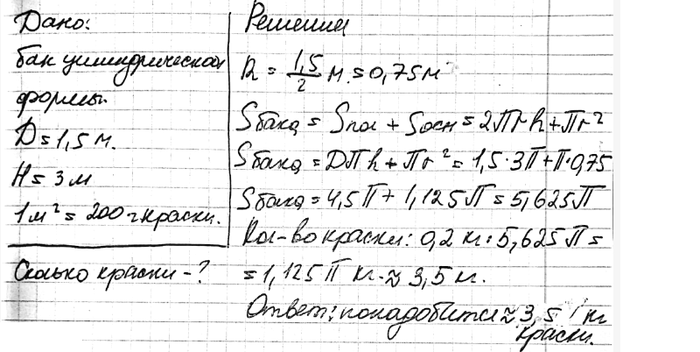 Дано:
бак цилиндрической
формы.
D=1,5 м.
H=3 м
1 м² = 200 г краски.
Сколько краски - ?
Решение
R = 1,5/2 м. = 0,75 м
Sбака = Sпол + Sосн = 2Пrh + Пr²
Sбака = DПh + Пr² = 1,5·3П + П·0,75
Sбака = 4,5П + 1,125П = 5,625П
Кол-во краски: 0,2 кг · 5,625П =
= 1,125П кг. ≈ 3,5 кг.
Ответ: понадобится ≈ 3,5 кг
краски.